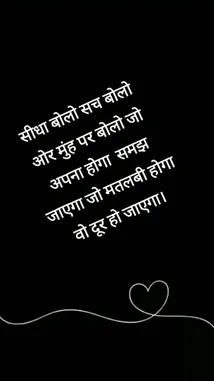 सीधा बोलो सच बोलो
ओर मुंह पर बोलो जो
अपना होगा समझ
जाएगा जो मतलबी होगा
वो दूर हो जाएगा।